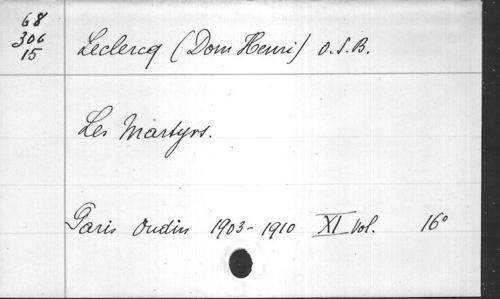 68
306
15
Leclercq (Dom Henri) O.S.B.
Les Martyrs.
Paris Oudin 1903-1910 XI Vol. 16°